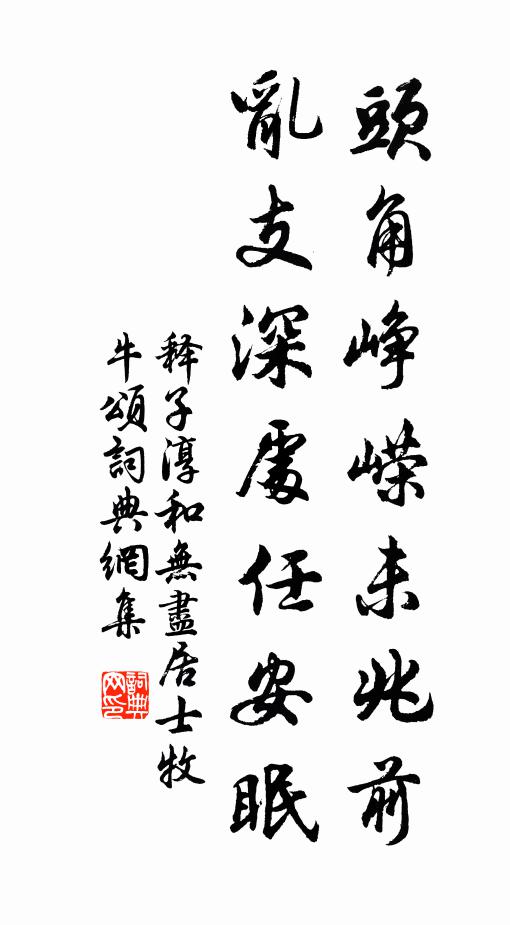 頭角峥嶸未兆前
亂支深處任安眠
释子淳和無盡居士牧
牛頌詞典網集
詞典网印